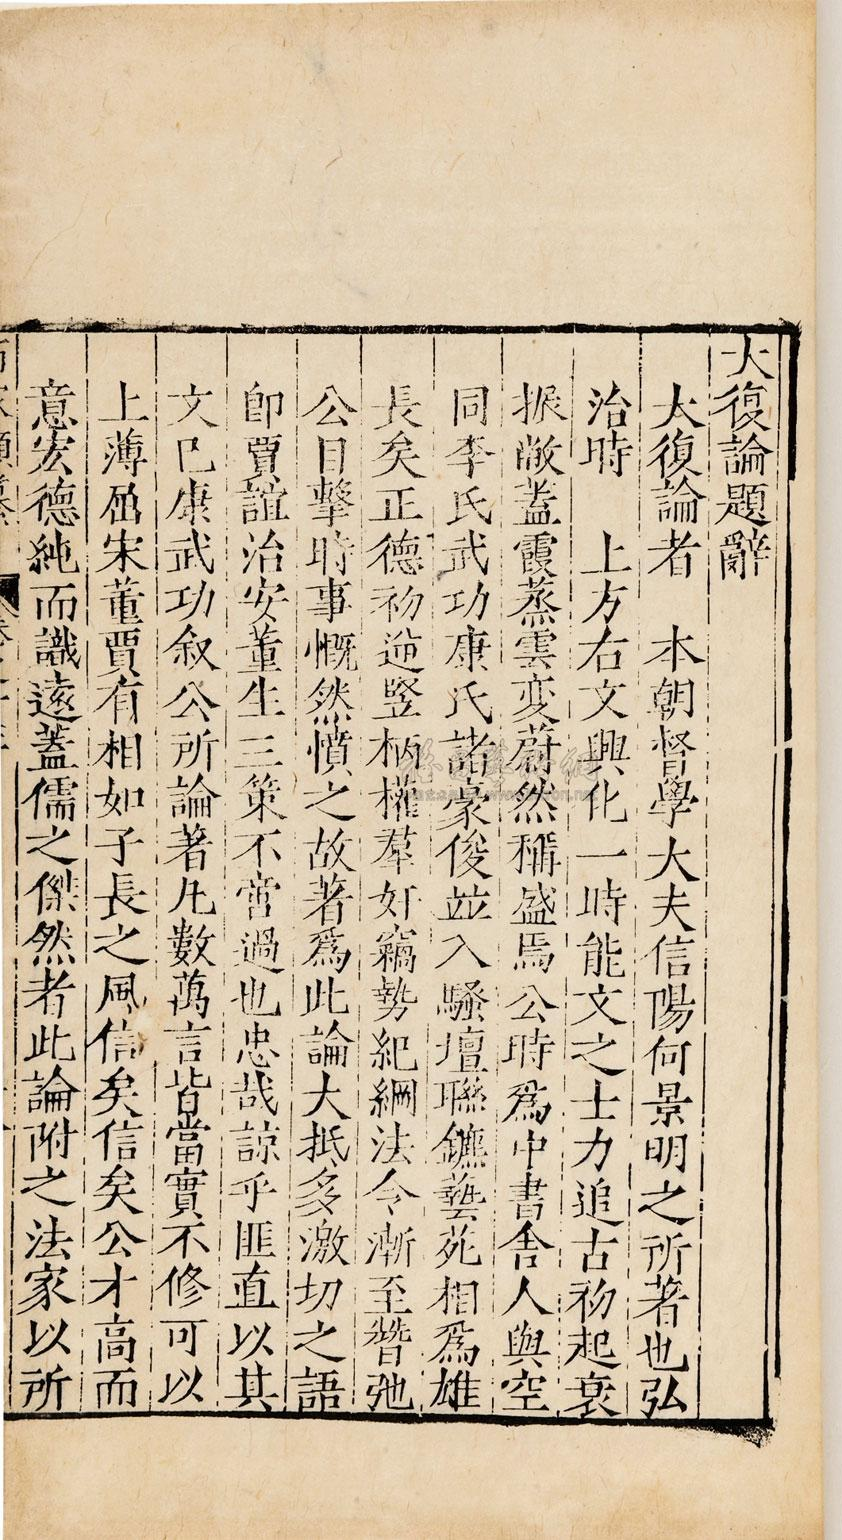 大復論題辭
大復論者　本朝督學大夫信陽何景明之所著也弘
治時　上方右文興化一時能文之士力追古初起衰
振敝蓋霞蒸雲変蔚然稱盛焉公時爲中書舎人與空
同李氏武功康氏諸豪俊並入騷壇聯鑣藝苑相爲雄
長矣正德初逆竪柄權羣奸竊勢紀綱法令漸至朁弛
公目擊時事慨然憤之故著爲此論大抵多激切之語
卽賈誼治安董生三策不啻過也忠哉諒乎匪直以其
文已康武功叙公所論著凡數萬言皆當實不修可以
上薄屈宋董賈有相如子長之風信矣信矣公才高而
意宏德純而識遠蓋儒之傑然者此論附之法家以所